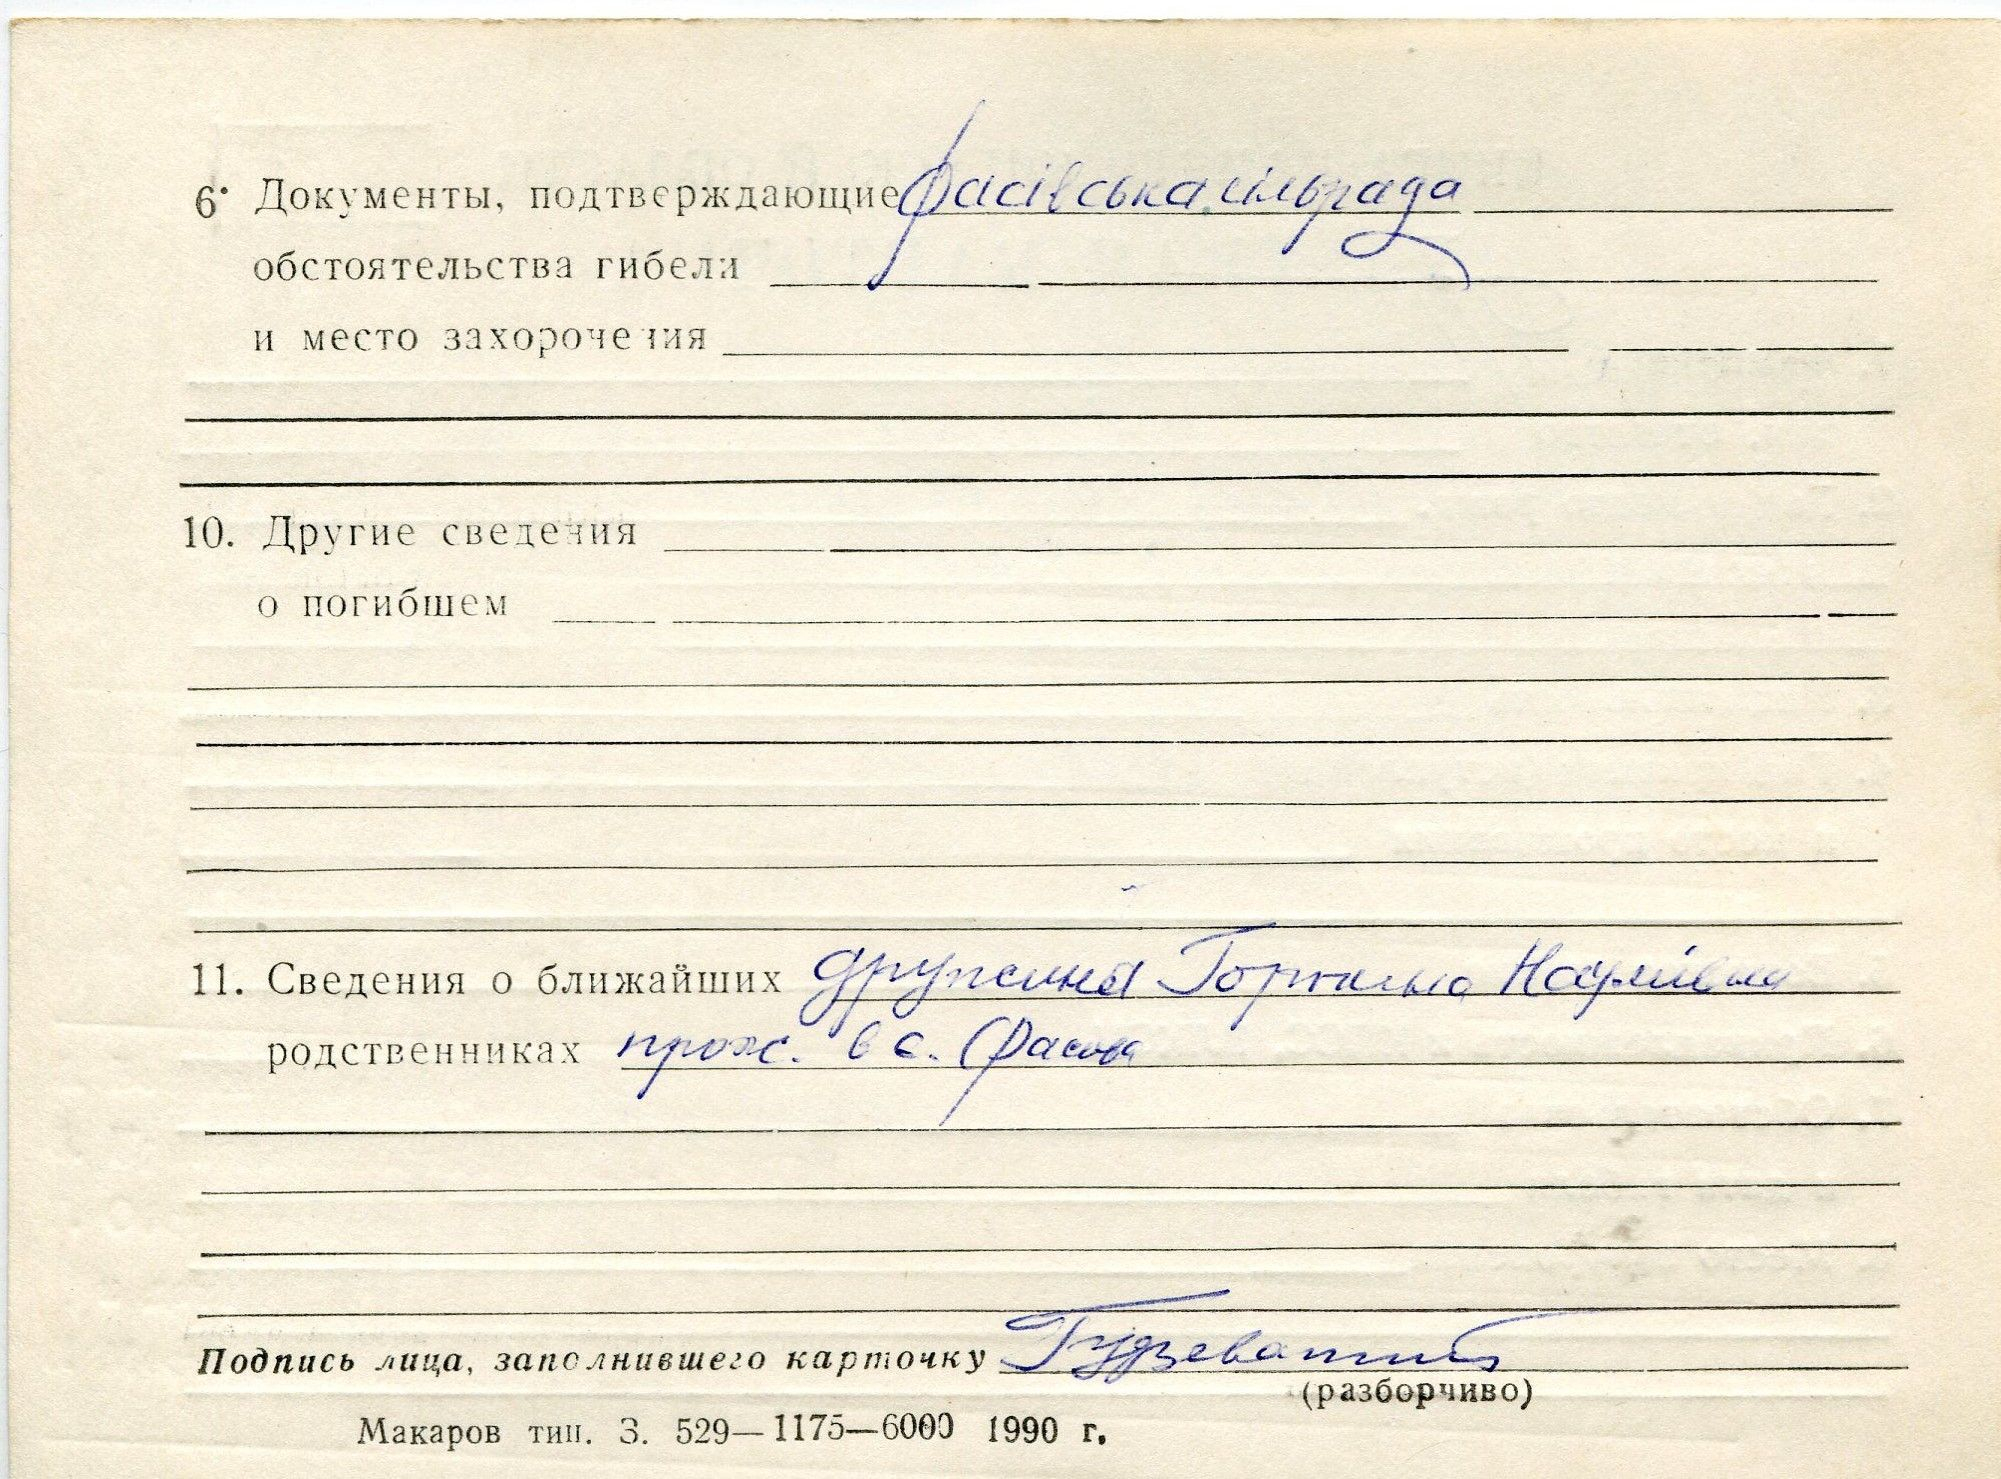 6. Документы, подтверждающие Фасівська сільрада
обстоятельства гибели
и место захоронения
10. Другие сведения
о погибшем
11. Сведения о ближайших дружина Горпина
родственниках прож. в с. Фасова
Подпись лица, заполнившего карточку
(разборчиво)
Макаров тип. З. 529—1175—6000 1990 г.